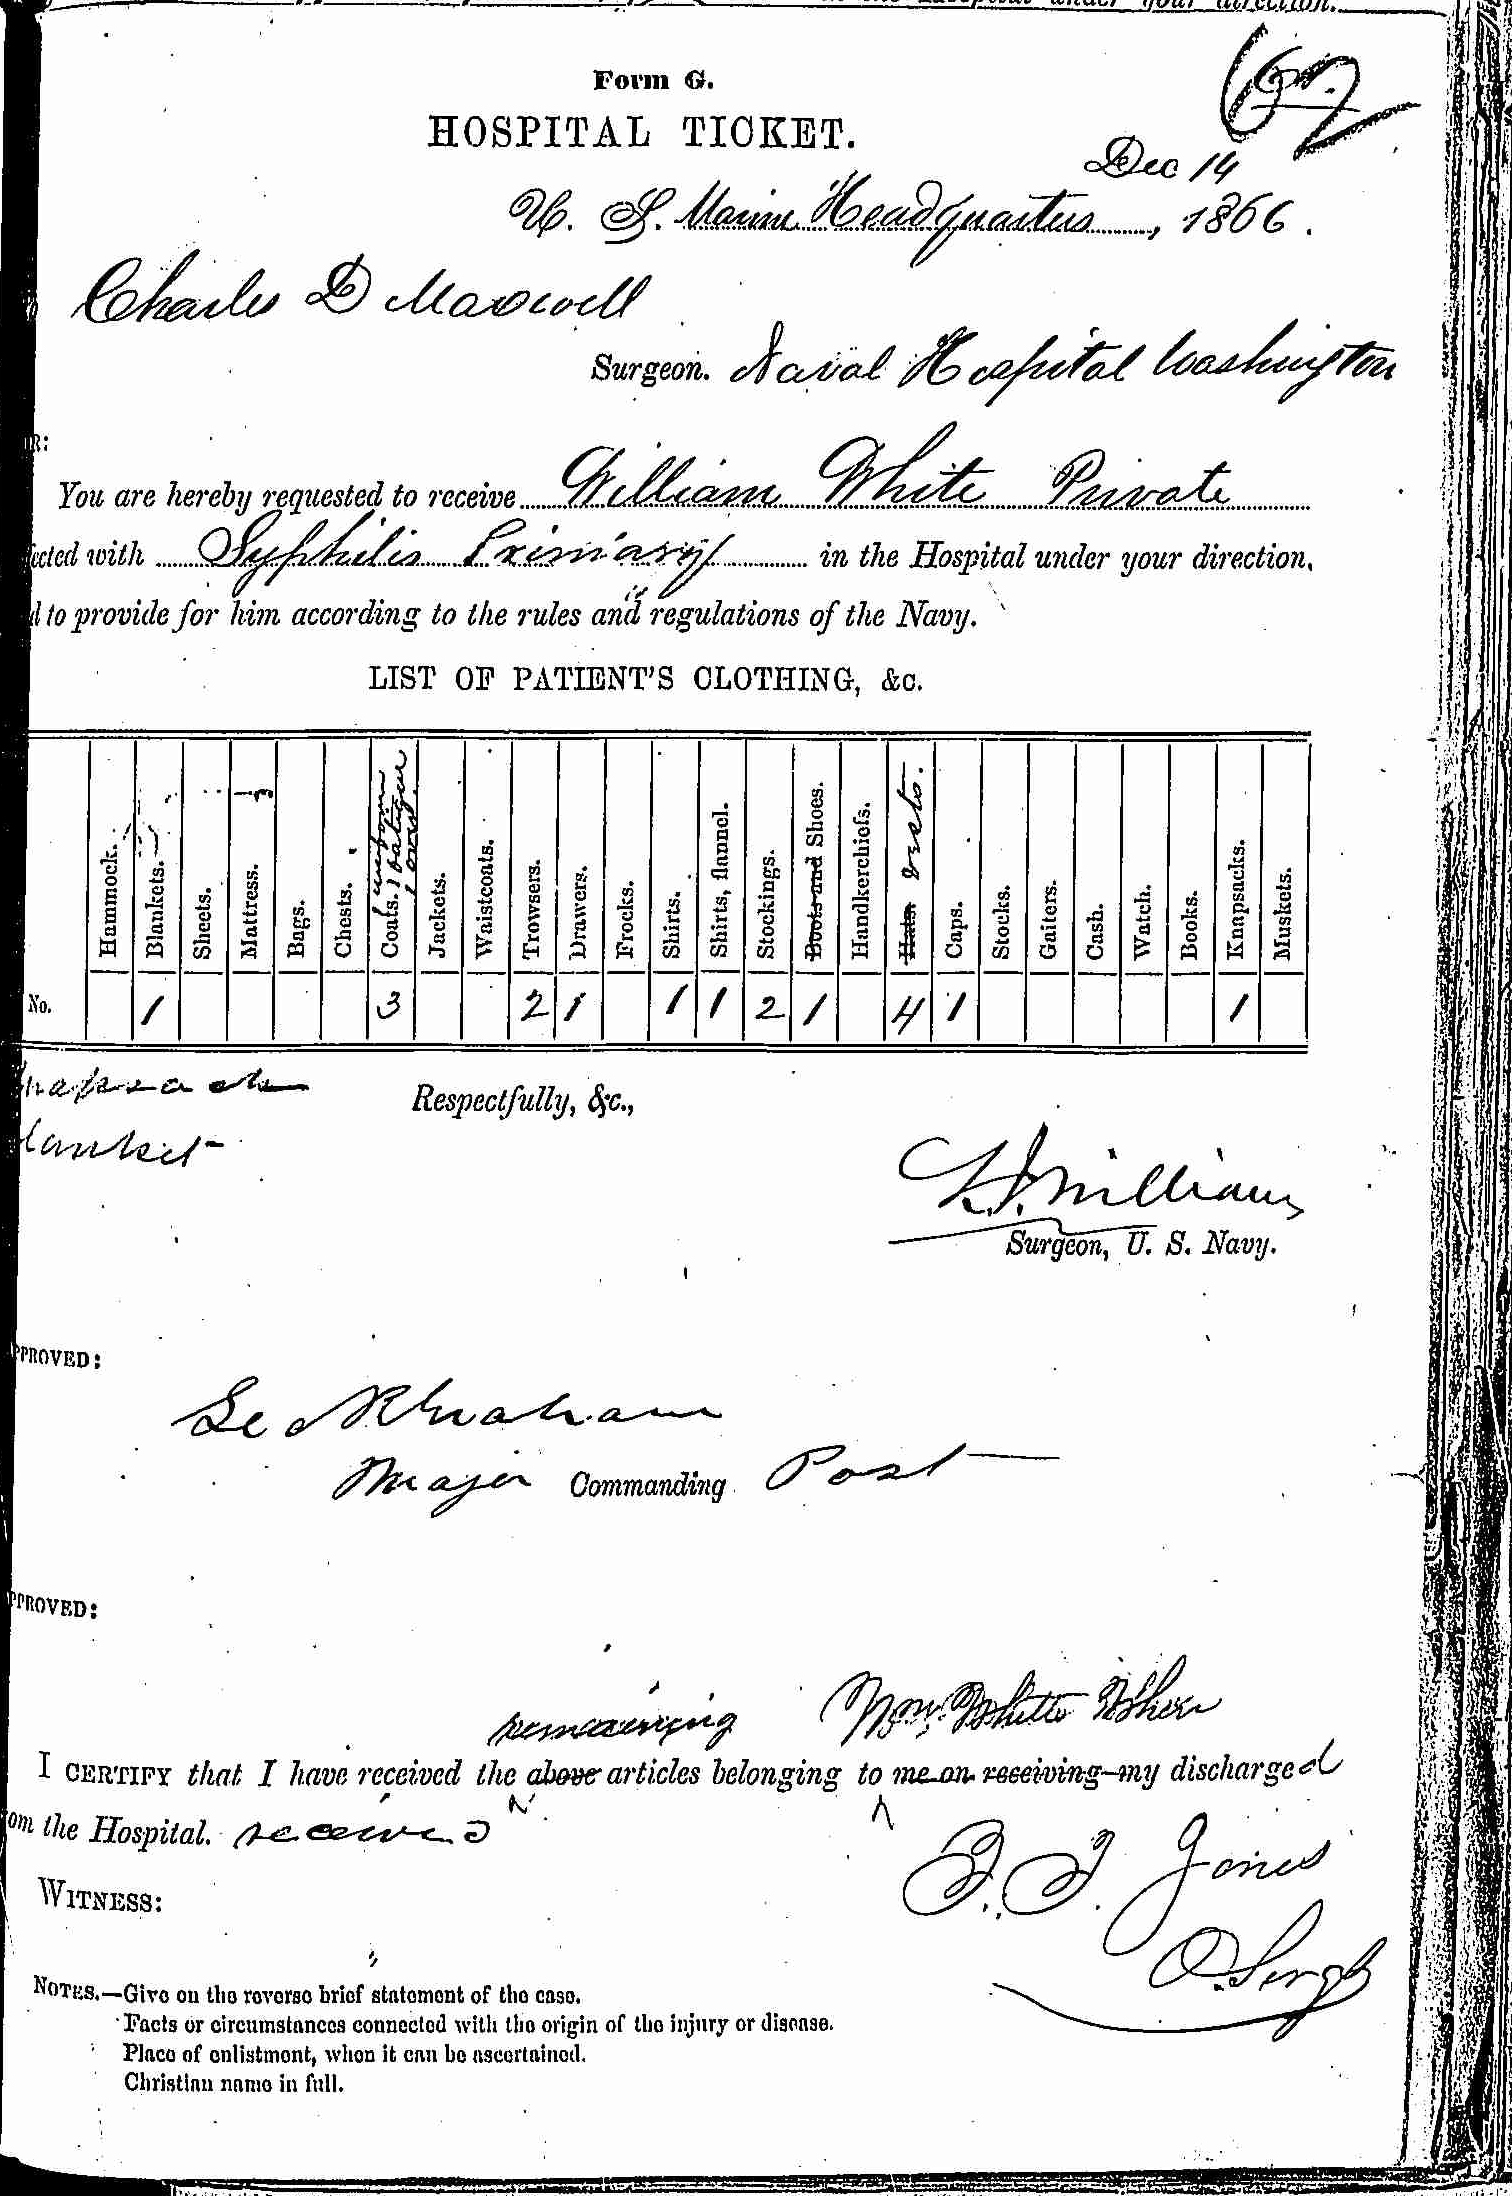 in the Hospital under your direction.
62
Form G.
HOSPITAL TICKET.
Dec 14
U. S. Marine Headquarters, 1866.
Charles D Maxwell
Surgeon. Naval Hospital Washington
R:
You are hereby requested to receive William White Private
ected with Syphilis Primary in the Hospital under your direction,
d to provide for him according to the rules and regulations of the Navy.
LIST OF PATIENT'S CLOTHING, &c.
Hammock. Blankets. Sheets. Mattress. Bags. Chests. Coats. 1 uniform 1 fatigue 1 over. Jackets. Waistcoats. Trowsers. Drawers. Frocks. Shirts. Shirts, flannel. Stockings. Boots and Shoes. Handkerchiefs. Hats. vests. Caps. Stocks. Gaiters. Cash. Watch. Books. Knapsacks. Muskets.
No. 1 3 2 1 1 1 2 1 4 1 1
napsack
lanket
Respectfully, &c.,
Williams
Surgeon, U. S. Navy.
PPROVED:
Graham
Major Commanding Post
PPROVED:
remaining Wm. White when
I CERTIFY that I have received the above articles belonging to me on receiving my discharged
om the Hospital. received
WITNESS:
F. F. Jones
O. Sergt
NOTES.—Give on the reverse brief statement of the case.
Facts or circumstances connected with the origin of the injury or disease.
Place of enlistment, when it can be ascertained.
Christian name in full.